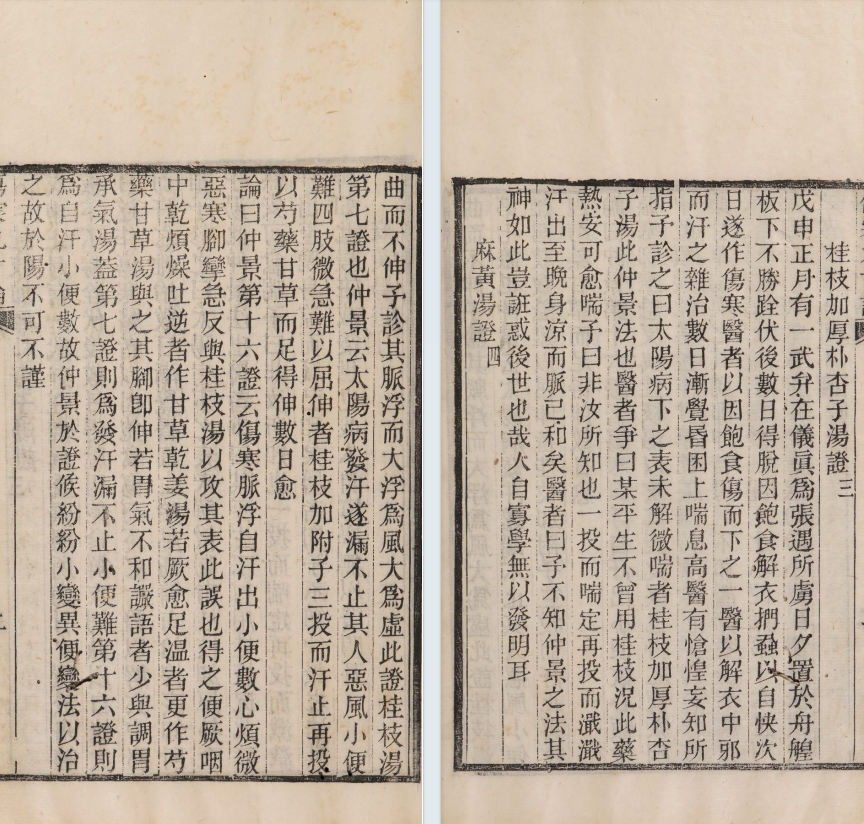 曲而不伸予診其脈浮而大浮爲風大爲虛此證桂枝湯
第七證也仲景云太陽病發汗遂漏不止其人惡風小便
難四肢微急難以屈伸者桂枝加附子三投而汗止再投
以芍藥甘草而足得伸數日愈
論曰仲景第十六證云傷寒脈浮自汗出小便數心煩微
惡寒腳攣急反與桂枝湯以攻其表此誤也得之便厥咽
中乾煩燥吐逆者作甘草乾姜湯若厥愈足温者更作芍
藥甘草湯與之其腳卽伸若胃氣不和讝語者少與調胃
承氣湯蓋第七證則爲發汗漏不止小便難第十六證則
爲自汗小便數故仲景於證候紛紛小變異便變法以治
之故於陽不可不謹
桂枝加厚朴杏子湯證三
戊申正月有一武弁在儀眞爲張遇所虜日夕置於舟艎
板下不勝跧伏後數日得脫因飽食解衣捫蝨以自快次
日遂作傷寒醫者以因飽食傷而下之一醫以解衣中邪
而汗之雜治數日漸覺昏困上喘息高醫有愴惶妄知所
指予診之曰太陽病下之表未解微喘者桂枝加厚朴杏
子湯此仲景法也醫者爭曰某平生不曾用桂枝況此藥
熱安可愈喘予曰非汝所知也一投而喘定再投而濈濈
汗出至晚身涼而脈已和矣醫者曰予不知仲景之法其
神如此豈誑惑後世也哉人自寡學無以發明耳
麻黃湯證四